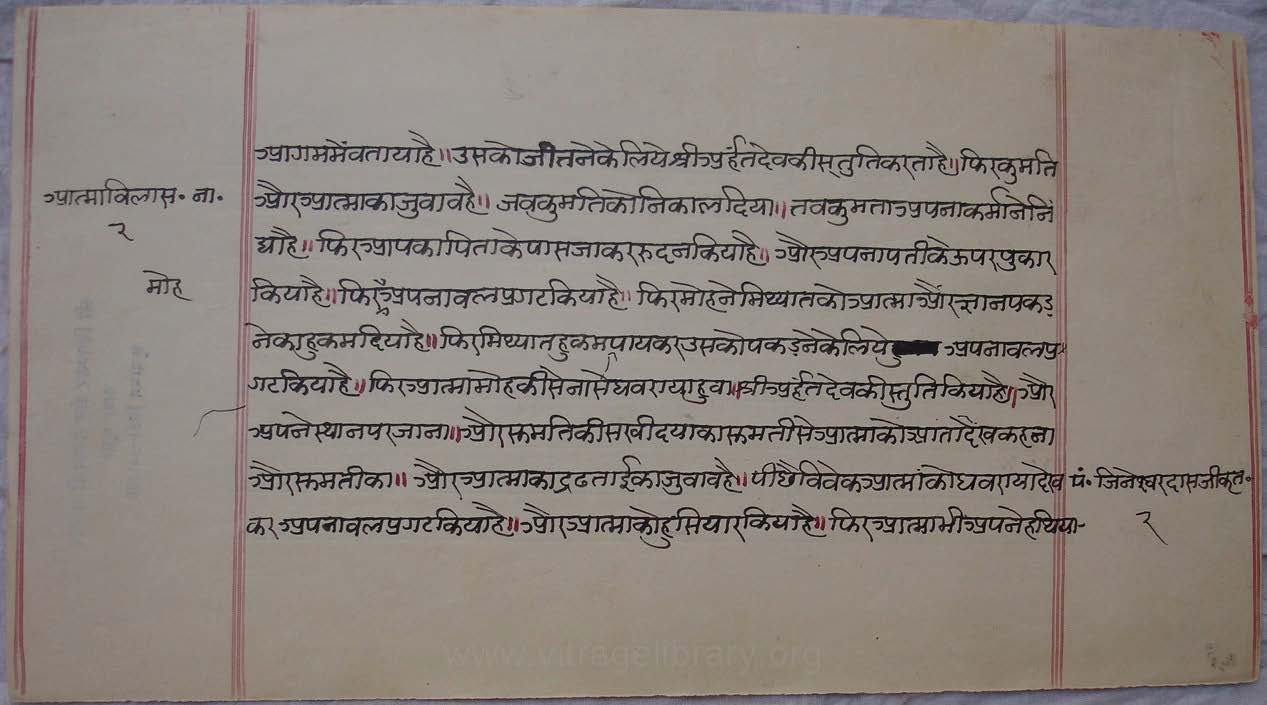 आगममेंवतायाहै॥ उसकोजीतनेकेलियेश्रीअर्हंतदेवकीस्तुतिकरताहै॥ फिरकुमति
आत्माविलास॰ ना॰
२
औरआत्माकाजुवावहै॥ जवकुमतिकोनिकालदिया॥ तवकुमताअपनाकर्मानेनिं
द्याहै॥ फिरआपकापिताकेपासजाकररुदनकियाहै॥ औरअपनापतीकेऊपरपुकार
मोह
कियाहै॥ फिरअपनावलप्रगटकियाहै॥ फिरमोहनेमिथ्यातकोआत्माऔरज्ञानपकड़
नेकाहुकमदियाहै॥ फिरमिथ्यातहुकमपायकरउसकोपकड़नैकेलिये अपनावलप्र
गटकियाहै॥ फिरआत्मामोहकीसेनासेंघवरायाहुवा॥ श्रीअर्हंतदेवकीस्तुतिकियाहै॥ और
अपनेस्थानपरजाना॥ औरसुमतिकीसखीदयाकासुमतीसेआत्माकोआतादेखकहना
औरसुमतीका॥ औरआत्माकाद्रढताईकाजुवावहै॥ पीछैविवेकआत्मांकोघवरायादेख
पं॰ जिनेश्वरदासजीकृत॰
२
करअपनावलप्रगटकियाहै॥ औरआत्माकोहुसियारकियाहै॥ फिरआत्माभीअपनेहथिया-
www.vitragelibrary.org